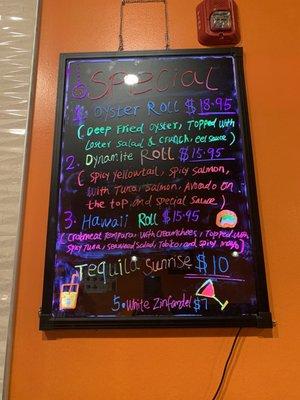 Special
1. Oyster Roll $18.95
(Deep Fried oyster, Topped with
Loster Salad & crunch, eel sauce)
2. Dynamite Roll $15.95
(spicy yellowtail, spicy salmon,
with Tuna, Salmon, Avocado on
the top and special Sauce)
3. Hawaii Roll $15.95
(crabmeat tempura, with creamcheese, Topped with
spicy Tuna, seaweed salad, Tobiko and spicy mayo)
Tequila Sunrise $10
5. White Zinfandel $7